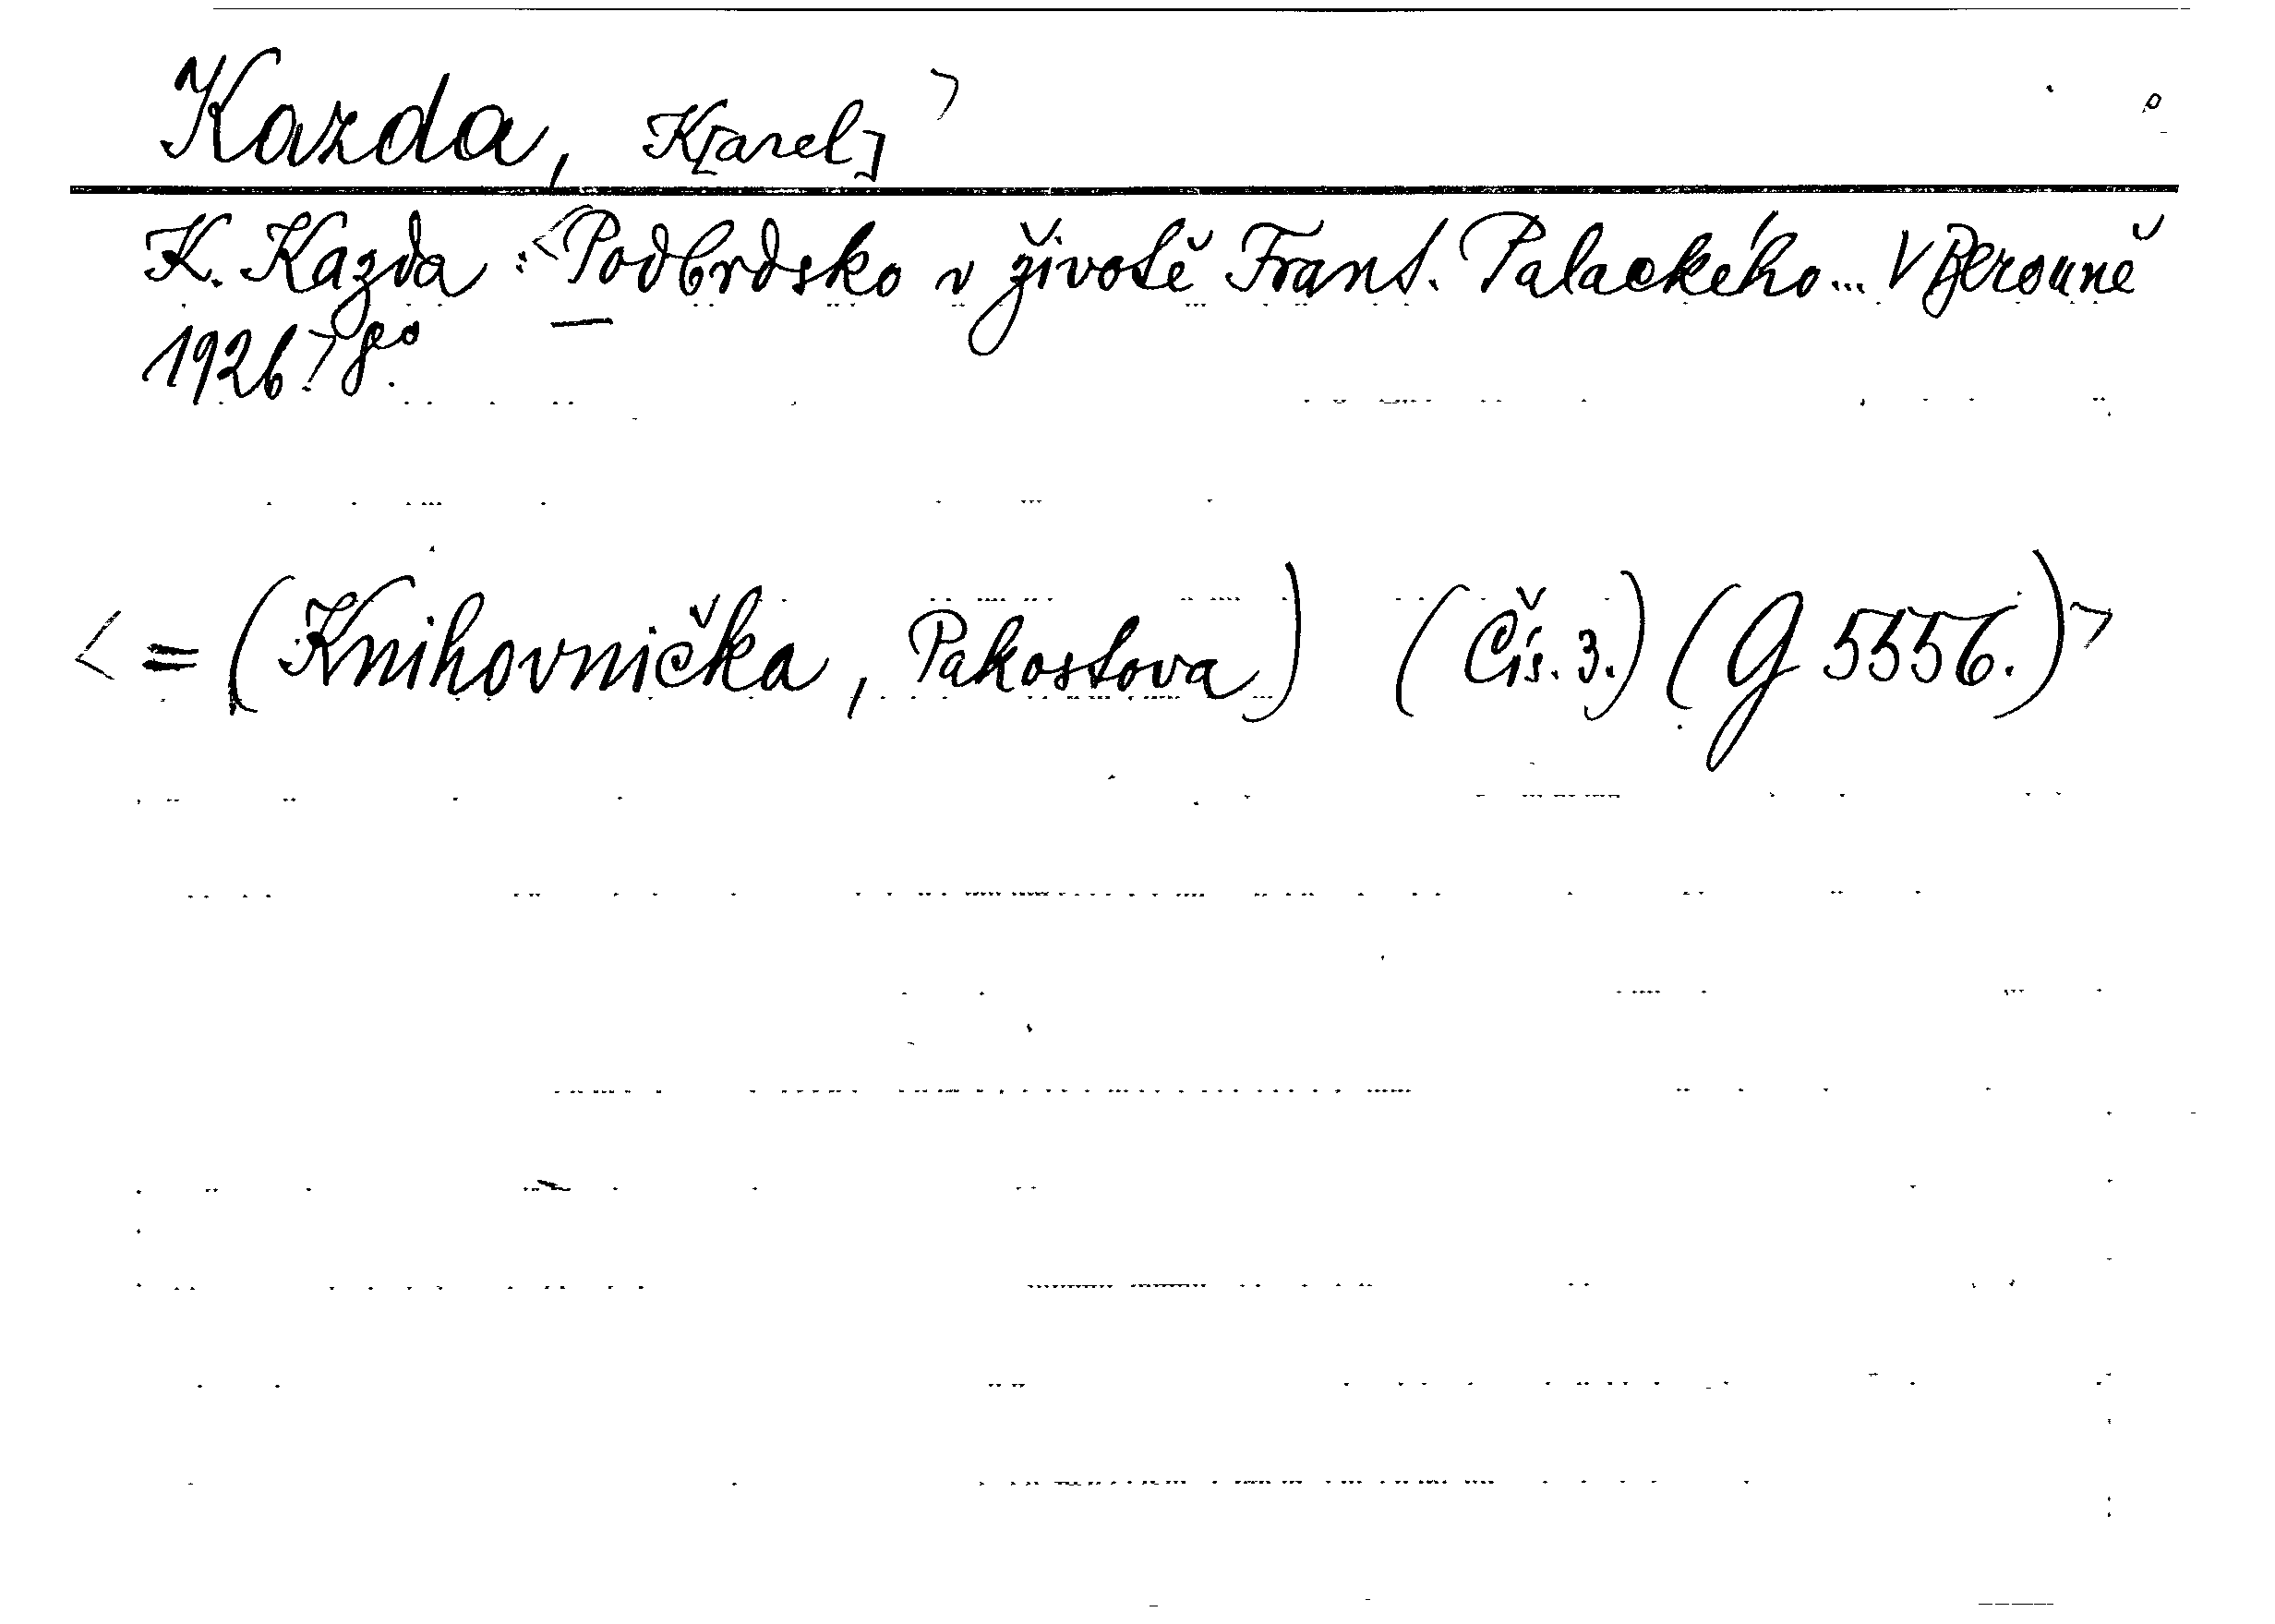 Kazda, K[arel] >
K. Kazda: <Podbrdsko v životě Frant. Palackého... V Berouně
1926.> 8°.
< = (Knihovnička, Pakostova) (Čís. 3.) (G 5556.) >